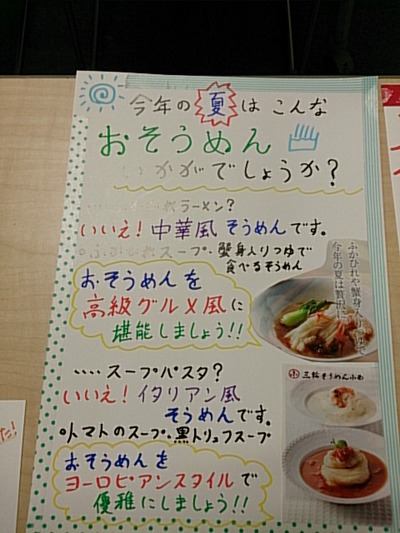 今年の夏は こんな
おそうめん
いかがでしょうか?
ラーメン?
いいえ! 中華風 そうめんです。
スープ・蟹身入りつゆで
食べるそうめん
おそうめんを
高級グルメ風に
堪能しましょう!!
ふかひれや蟹身入りつゆで
今年の夏は贅沢に
‥‥スープパスタ?
いいえ! イタリアン風
そうめんです。
トマトのスープ・黒トリュフスープ
おそうめんを
ヨーロピアンスタイルで
優雅にしましょう!!
三輪そうめん小西